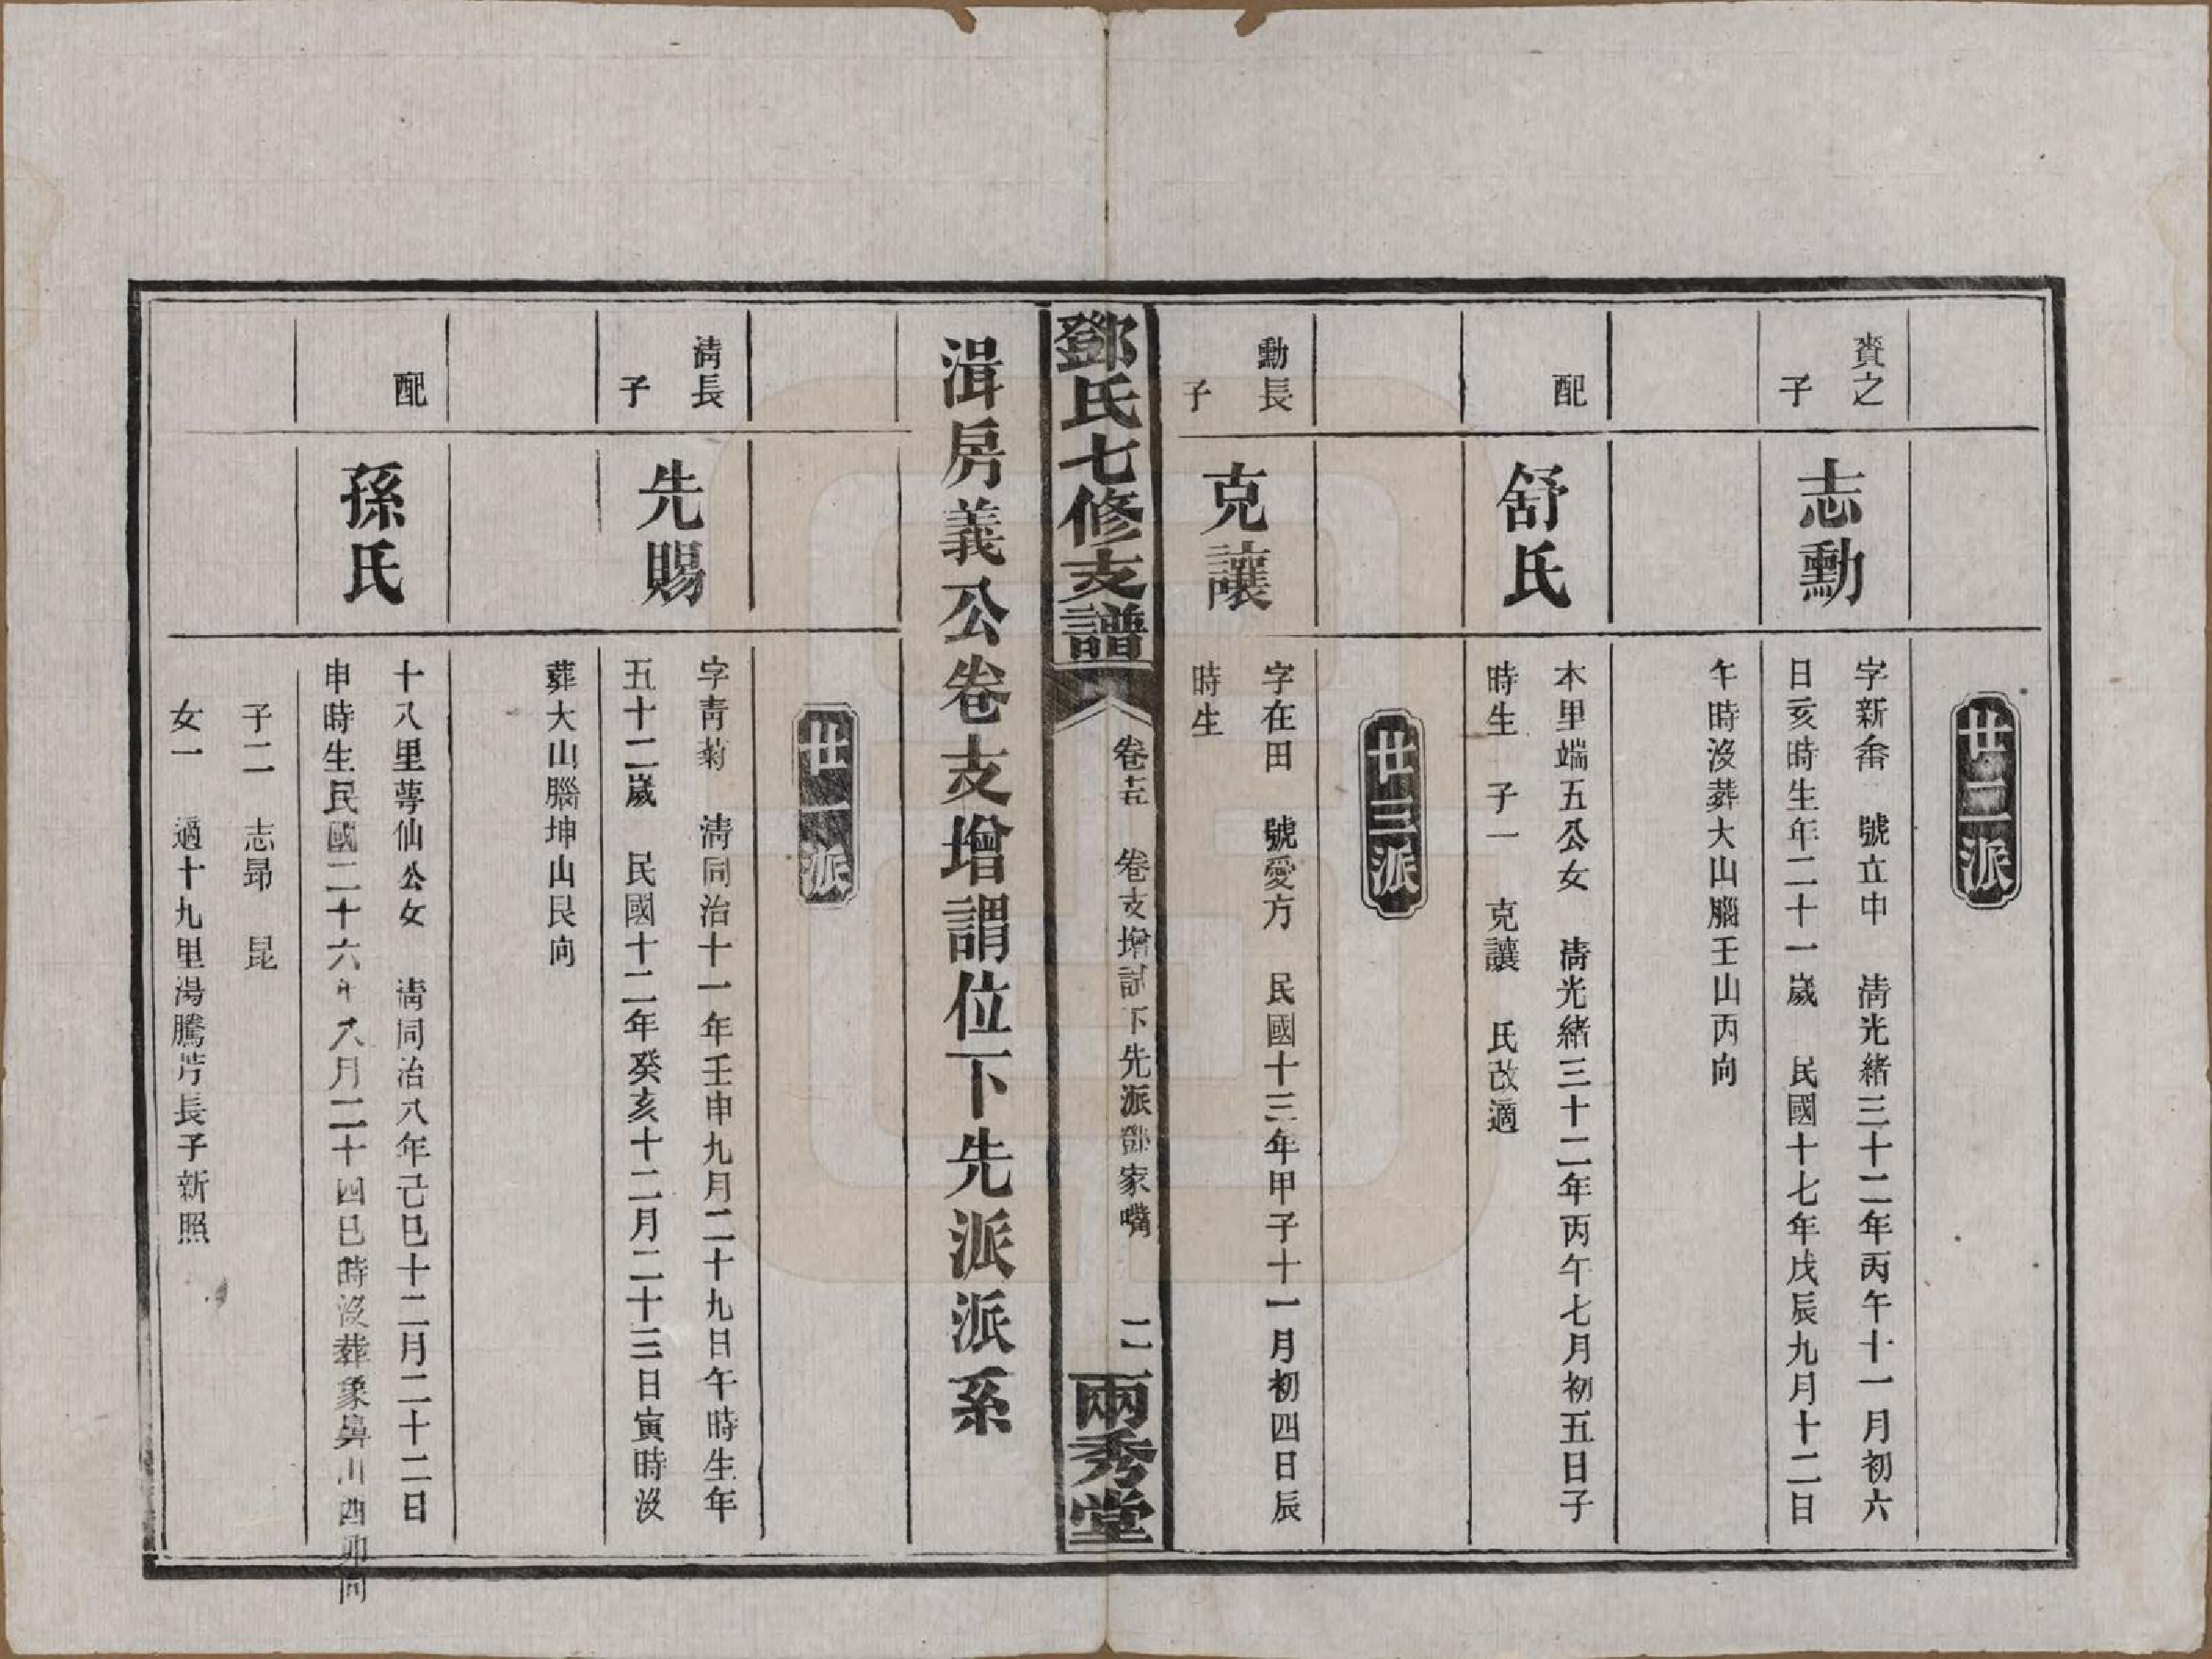 廿二派
賚之
子
志勳
字新畨 號立中 淸光緒三十二年丙午十一月初六
日亥時生年二十一歲 民國十七年戊辰九月十二日
午時沒葬大山腦壬山丙向
配
舒氏
本里端五公女 淸光緒三十二年丙午七月初五日子
時生 子一 克讓 氏改適
廿三派
勳長
子
克讓
字在田 號愛方 民國十三年甲子十一月初四日辰
時生
鄧氏七修支譜
卷 卷支增 下先派鄧家嘴
二
兩秀堂
湒房義公卷支增謂位下先派派系
廿一派
淸長
子
先賜
字靑菊 淸同治十一年壬申九月二十九日午時生年
五十二歲 民國十二年癸亥十二月二十三日寅時沒
葬大山腦坤山艮向
配
孫氏
十八里萼仙公女 淸同治八年己巳十二月二十二日
申時生民國二十六年八月二十四巳時沒葬象鼻山酉卯向
子二 志昻 昆
女一 適十九里湯騰芳長子新照